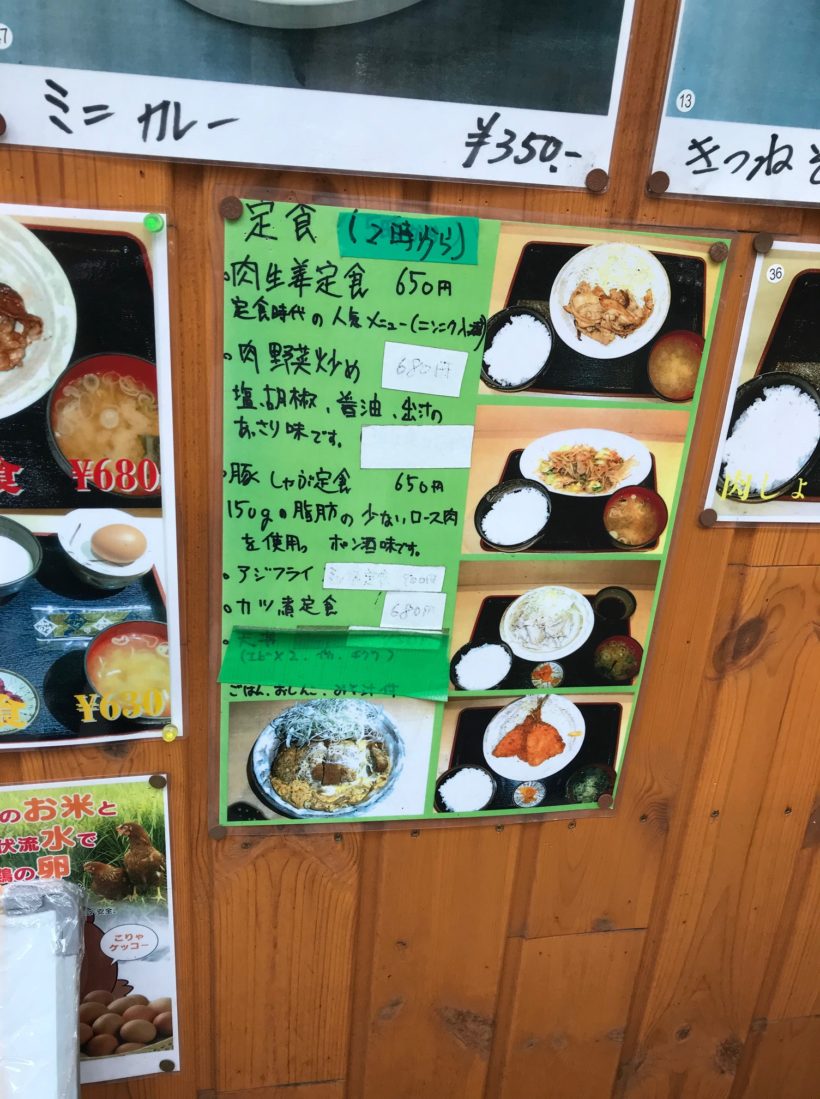 47
ミニカレー
¥350.-
13
きつねそ
定食 (2時から)
・肉生姜定食 650円
定食時代の人気メニュー(ニンニク入
・肉野菜炒め 680円
塩、胡椒、醤油、出汁の
あっさり味です。
・豚しゃぶ定食 650円
150gの脂肪の少ないロース肉
を使用。ポン酒味です。
・アジフライ
・カツ煮定食 680円
(エビ×2、イカ、
ごはん、おしんこ、みそ汁付
食 ¥680
食 ¥630
36
肉しょ
のお米と
伏流水で
鶏の卵
こりゃ
ケッコー